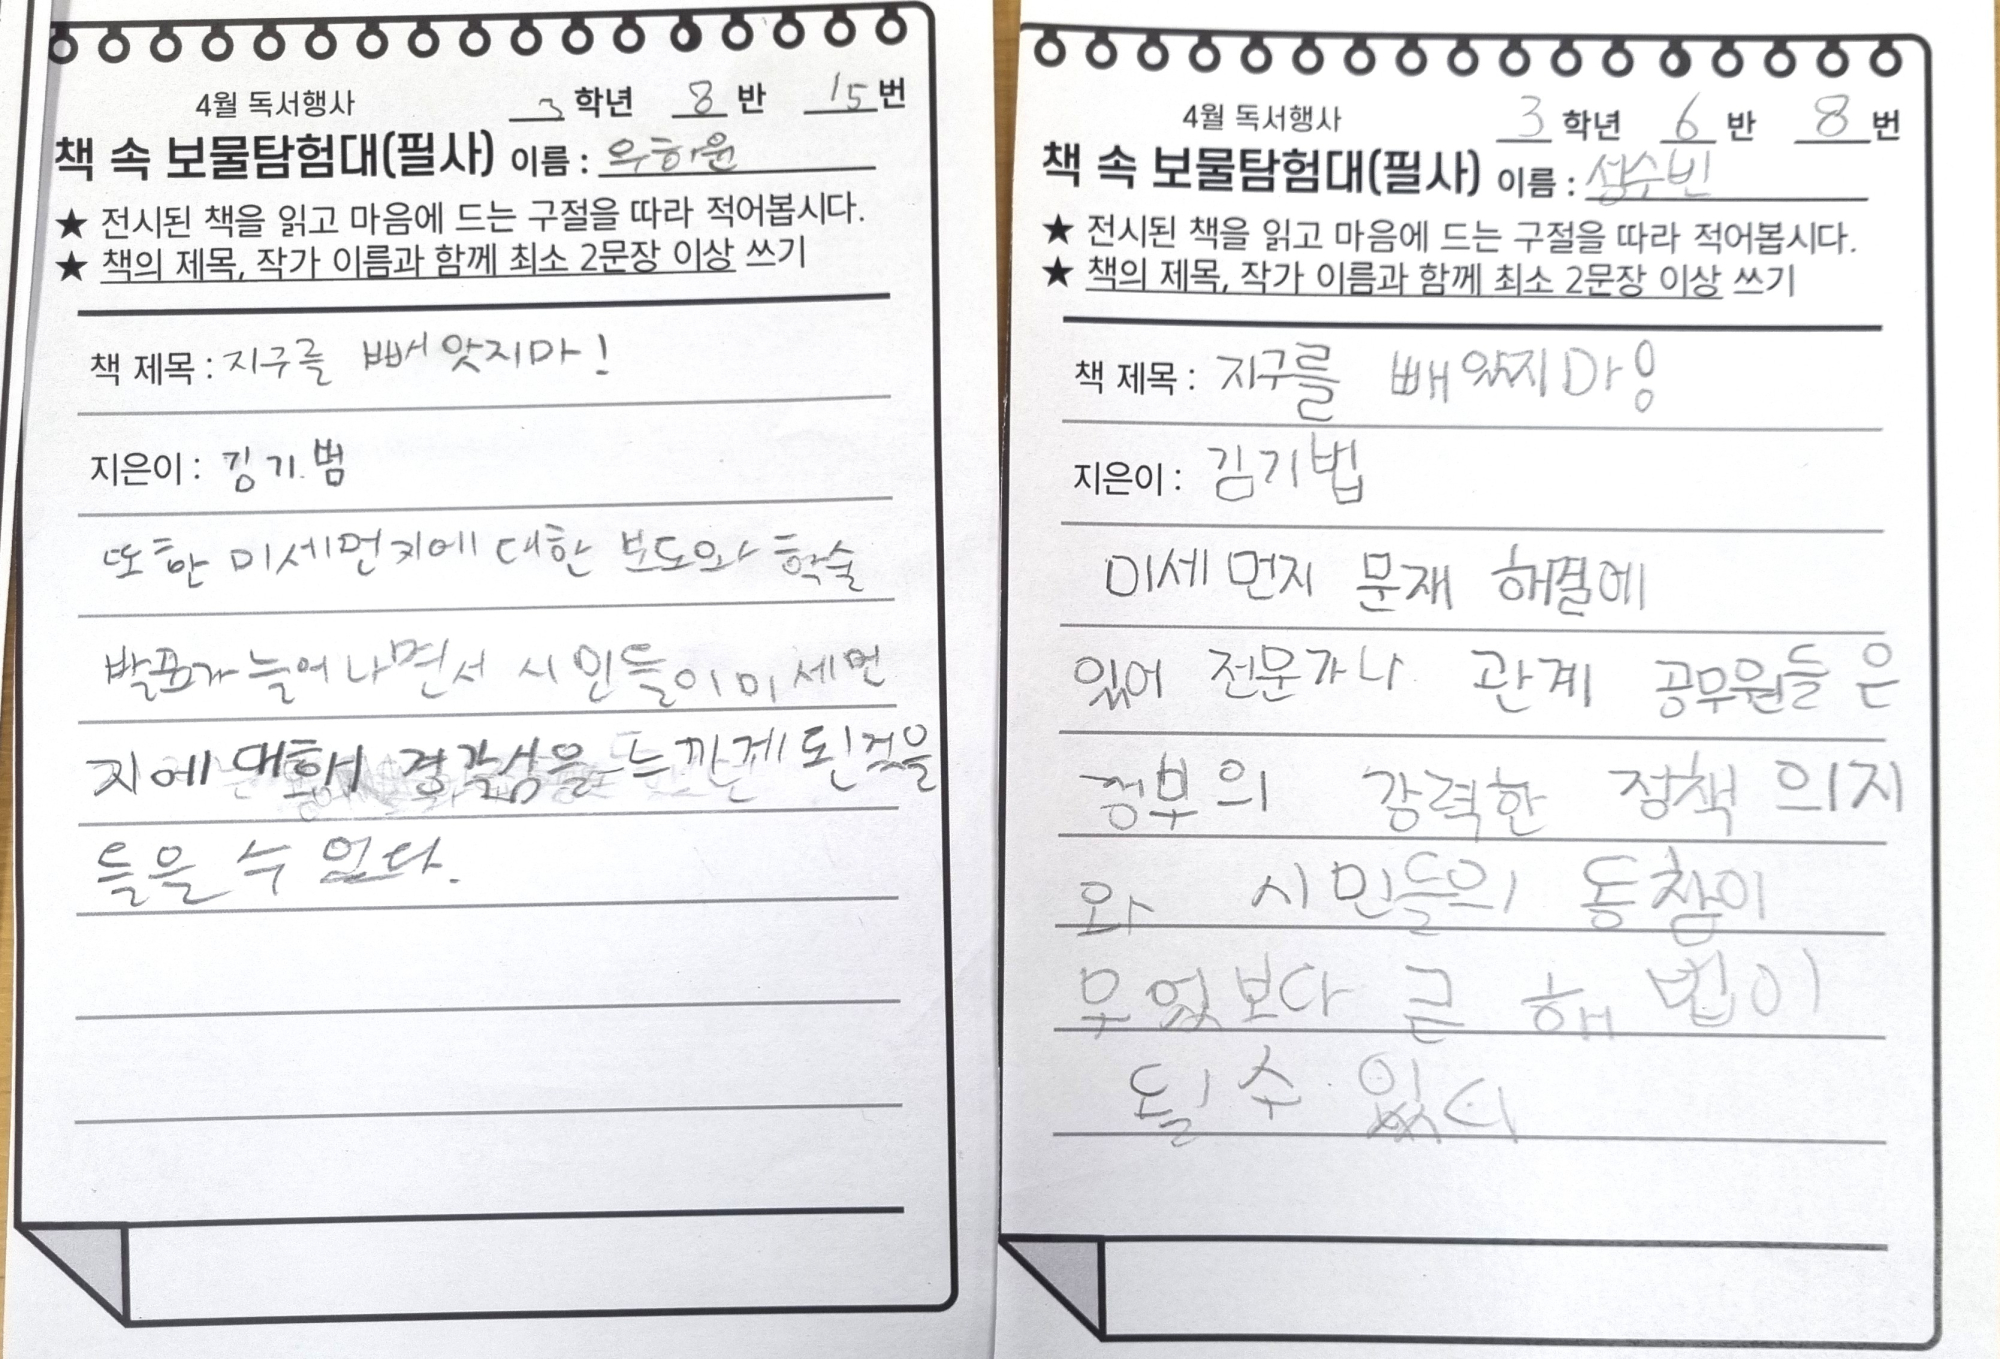 4월 독서행사
3 학년 8 반 15번
책 속 보물탐험대(필사) 이름 : 우하원
★ 전시된 책을 읽고 마음에 드는 구절을 따라 적어봅시다.
★ 책의 제목, 작가 이름과 함께 최소 2문장 이상 쓰기
책 제목 : 지구를 빼앗지마!
지은이 : 김기범
또한 미세먼지에 대한 보도와 학술
발표가 늘어나면서 시민들이 미세먼
지에 대해 경각심을 느끼게 된것을
들을 수 있다.
4월 독서행사
3 학년 6 반 8번
책 속 보물탐험대(필사) 이름 : 성수빈
★ 전시된 책을 읽고 마음에 드는 구절을 따라 적어봅시다.
★ 책의 제목, 작가 이름과 함께 최소 2문장 이상 쓰기
책 제목 : 지구를 빼앗지마!
지은이 : 김기법
미세먼지 문재 해결에
있어 전문가나 관계 공무원들은
정부의 강력한 정책 의지
와 시민들의 동참이
무엇보다 큰 해법이
될 수 있다